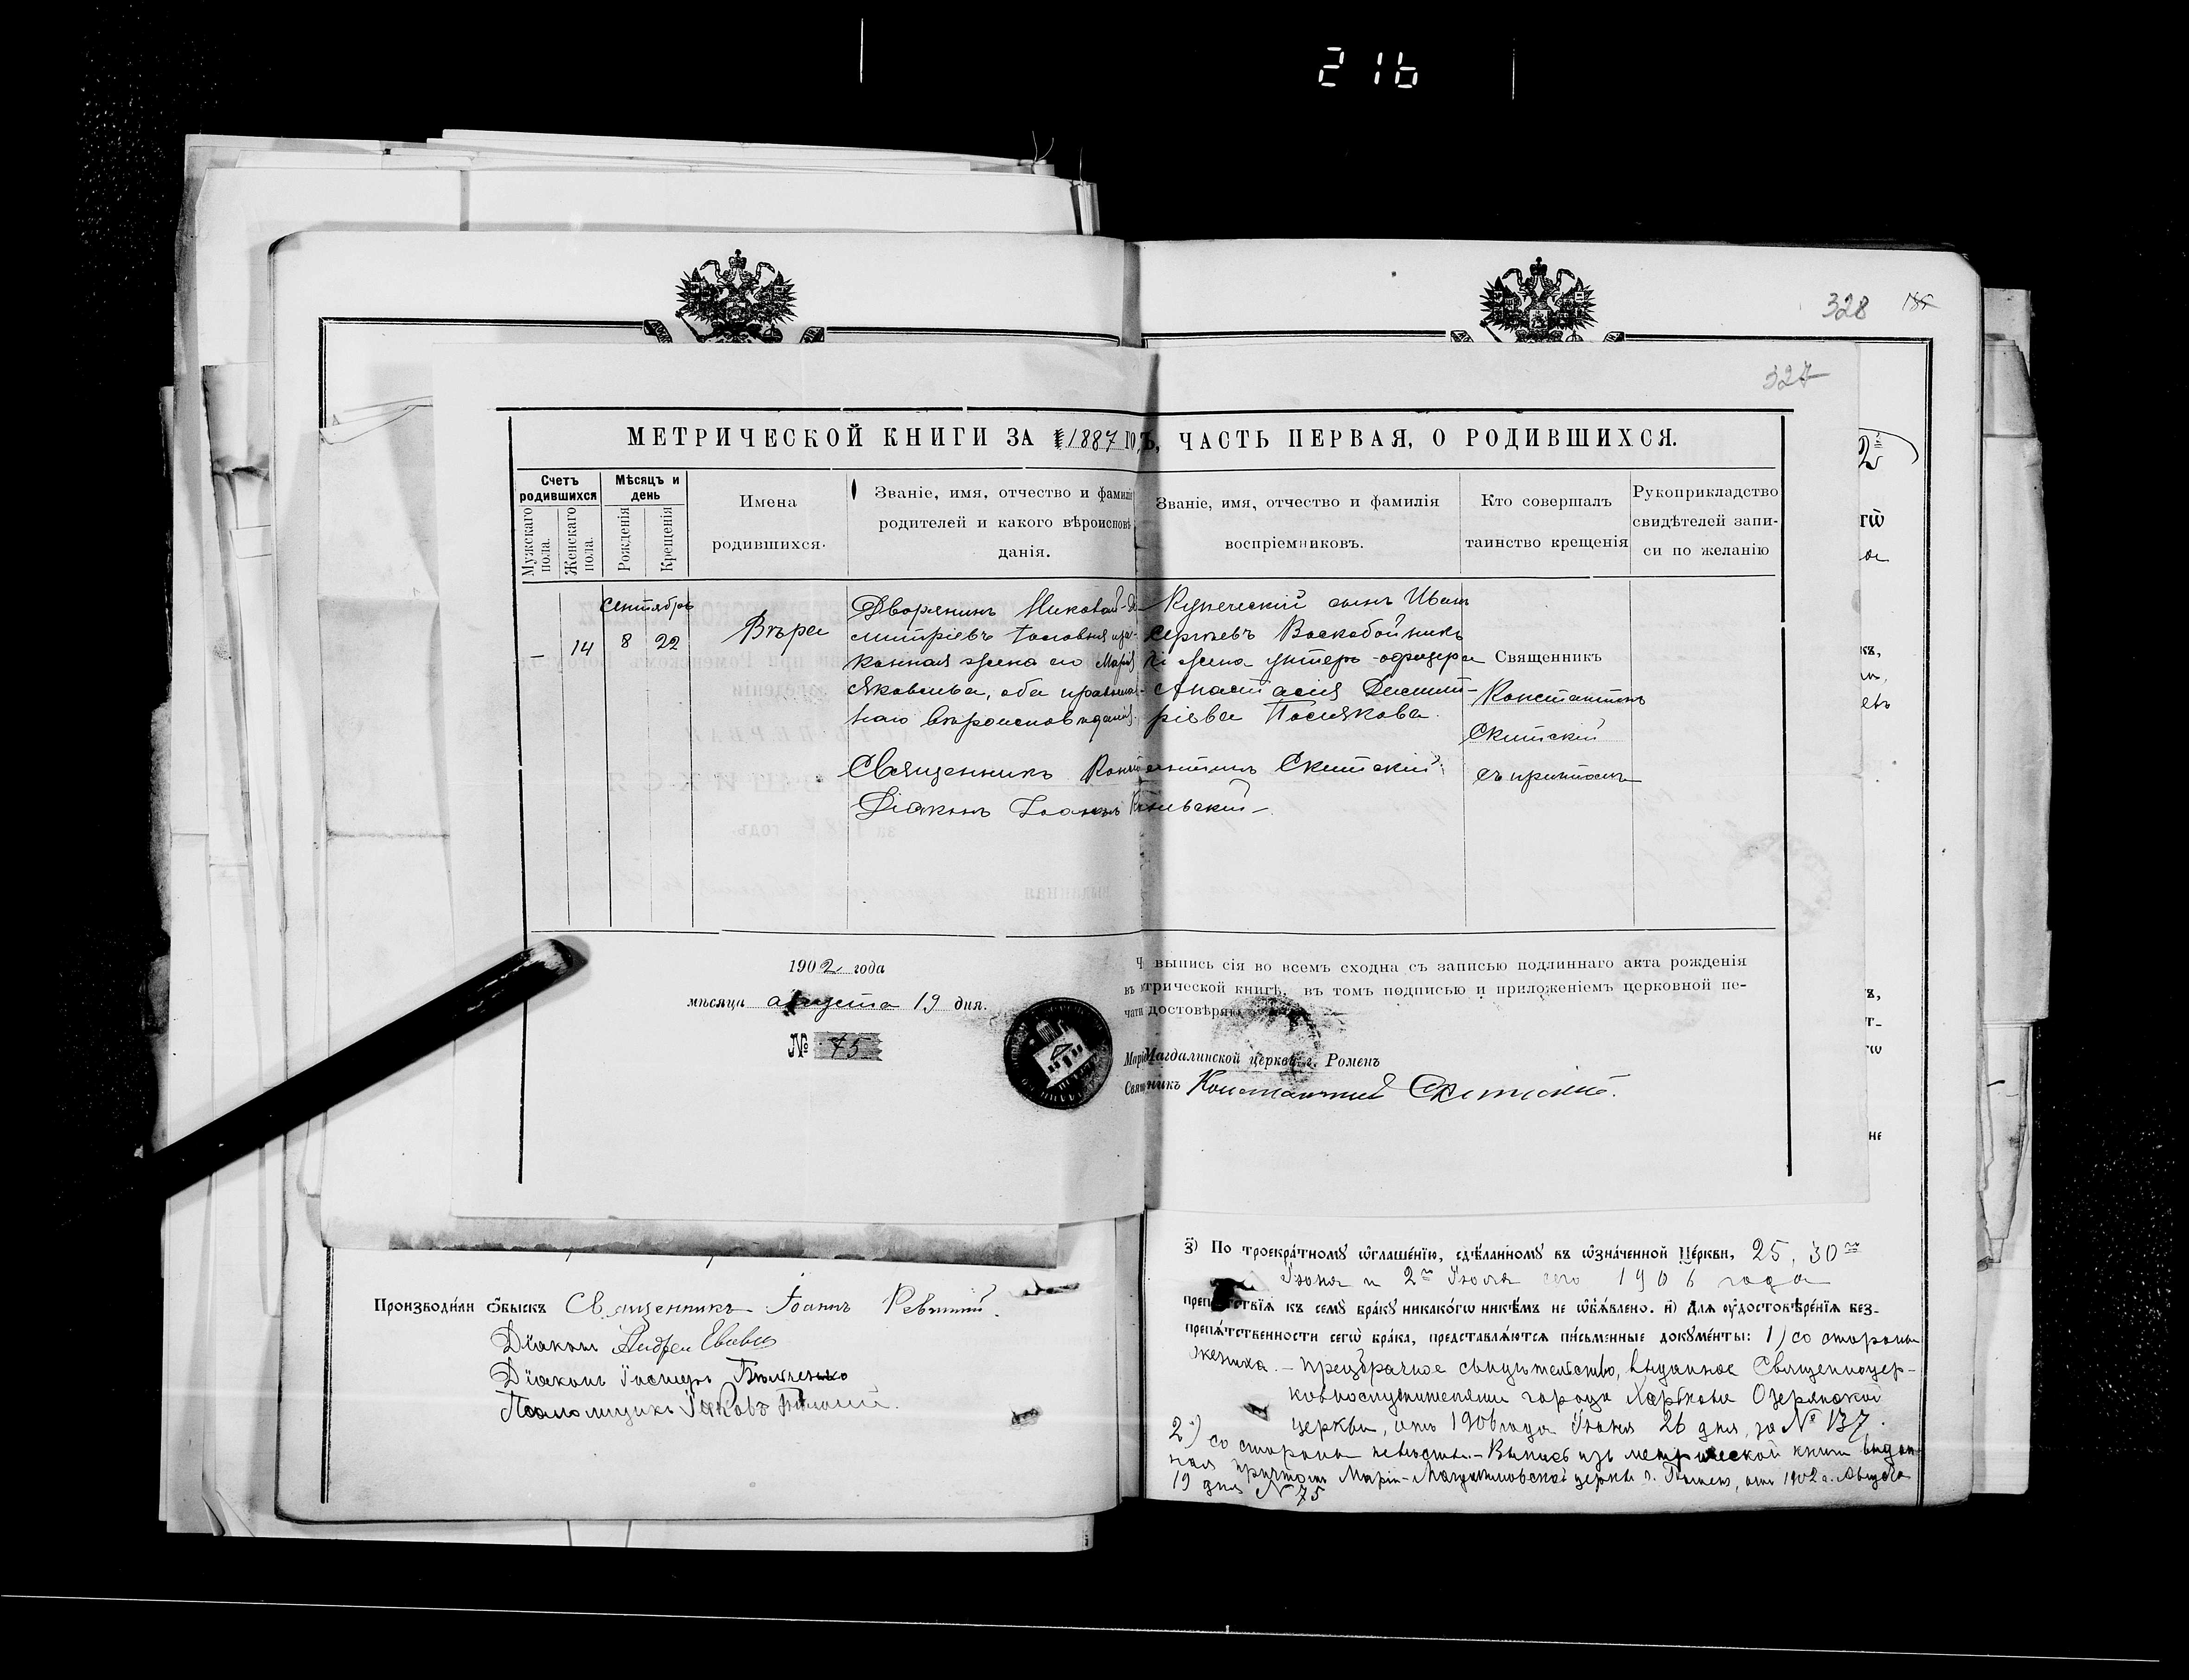 216
328
327
МЕТРИЧЕСКОЙ КНИГИ ЗА 1887 ГО ЧАСТЬ ПЕРВАЯ, О РОДИВШИХСЯ.
Счетъ родившихся
Мужскаго пола.
Женскаго пола.
Мѣсяцъ и день
Рожденія
Крещенія
Имена
родившихся.
Званіе, имя, отчество и фамилі
родителей и какого вѣроисповѣ
данія.
Званіе, имя, отчество и фамилія
воспріемниковъ.
Кто совершалъ
таинство крещенія
Рукоприкладство
свидѣтелей запи-
си по желанію
Сентябрь
– 14 8 22
Вѣра
Дворянинъ Николай Ди-
митріевъ и за-
конная жена его Марія
Яковлева, оба православ-
наго вѣроисповѣданія.
Купеческій сынъ Иванъ
Сергѣевъ Воскобойникъ
и жена унтеръ-офицера
Анастасія Димит-
ріева Полякова.
Священникъ
Константинъ
Скитскій
съ причтомъ
Священникъ Константинъ Скитскій
Діаконъ Іоаннъ
1902 года
мѣсяца августа 19 дня.
№ 75
Ч выпись сія во всемъ сходна съ записью подлиннаго акта рожденія
въ трической книгѣ, въ томъ подписью и приложеніемъ церковной пе-
чати достовѣряю
Магдалинской церкви г. Роменъ
никъ Константинъ Скитскій.
Производи́ли ѻ́быскъ Священникъ Іоаннъ
Діаконъ Андрей
Діаконъ
Псаломщикъ Яковъ
з҃) По троекра́тномꙋ ѡ҆глаше́нїю, сдѣ́ланномꙋ въ ѡ҆зна́ченной Це́ркви, 25, 30го
Іюня и 2го Іюля сего 1906 года
препѧ́тствїѧ къ семꙋ̀ бра́кꙋ никако́гѡ никѣ́мъ не ѡ҆б̾ѧ́влено. и҃) Длѧ ᲂу҆достовѣре́нїѧ без-
препѧ́тственности сегѡ̀ бра́ка, представлѧ́ютсѧ пи́сьменные докꙋме́нты: 1) со стороны
жениха – предбрачное свидѣтельство, выданное Священноцер-
ковнослужителями города Харькова Озерянской
церкви, отъ 1906 года Іюня 26 дня, за № 137.
2) со стороны невѣсты – Выпись изъ метрической книги выдан-
ная причтомъ Маріи-Магдалиновской церкви г. Роменъ, отъ 1902 г. Августа
19 дня № 75